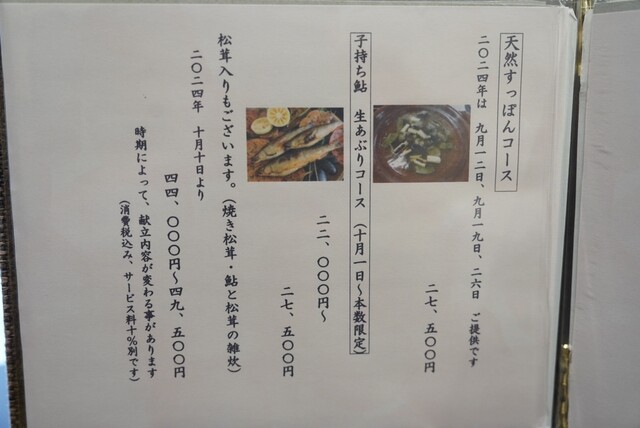 天然すっぽんコース
二〇二四年は　九月一二日、九月一九日、二六日　ご提供です
二七、五〇〇円
子持ち鮎　生あぶりコース　（十月一日～本数限定）
二二、〇〇〇円～
二七、五〇〇円
松茸入りもございます。（焼き松茸・鮎と松茸の雑炊）
二〇二四年　十月十日より
四四、〇〇〇円～四九、五〇〇円
時期によって、献立内容が変わる事があります
（消費税込み、サービス料十％別です）